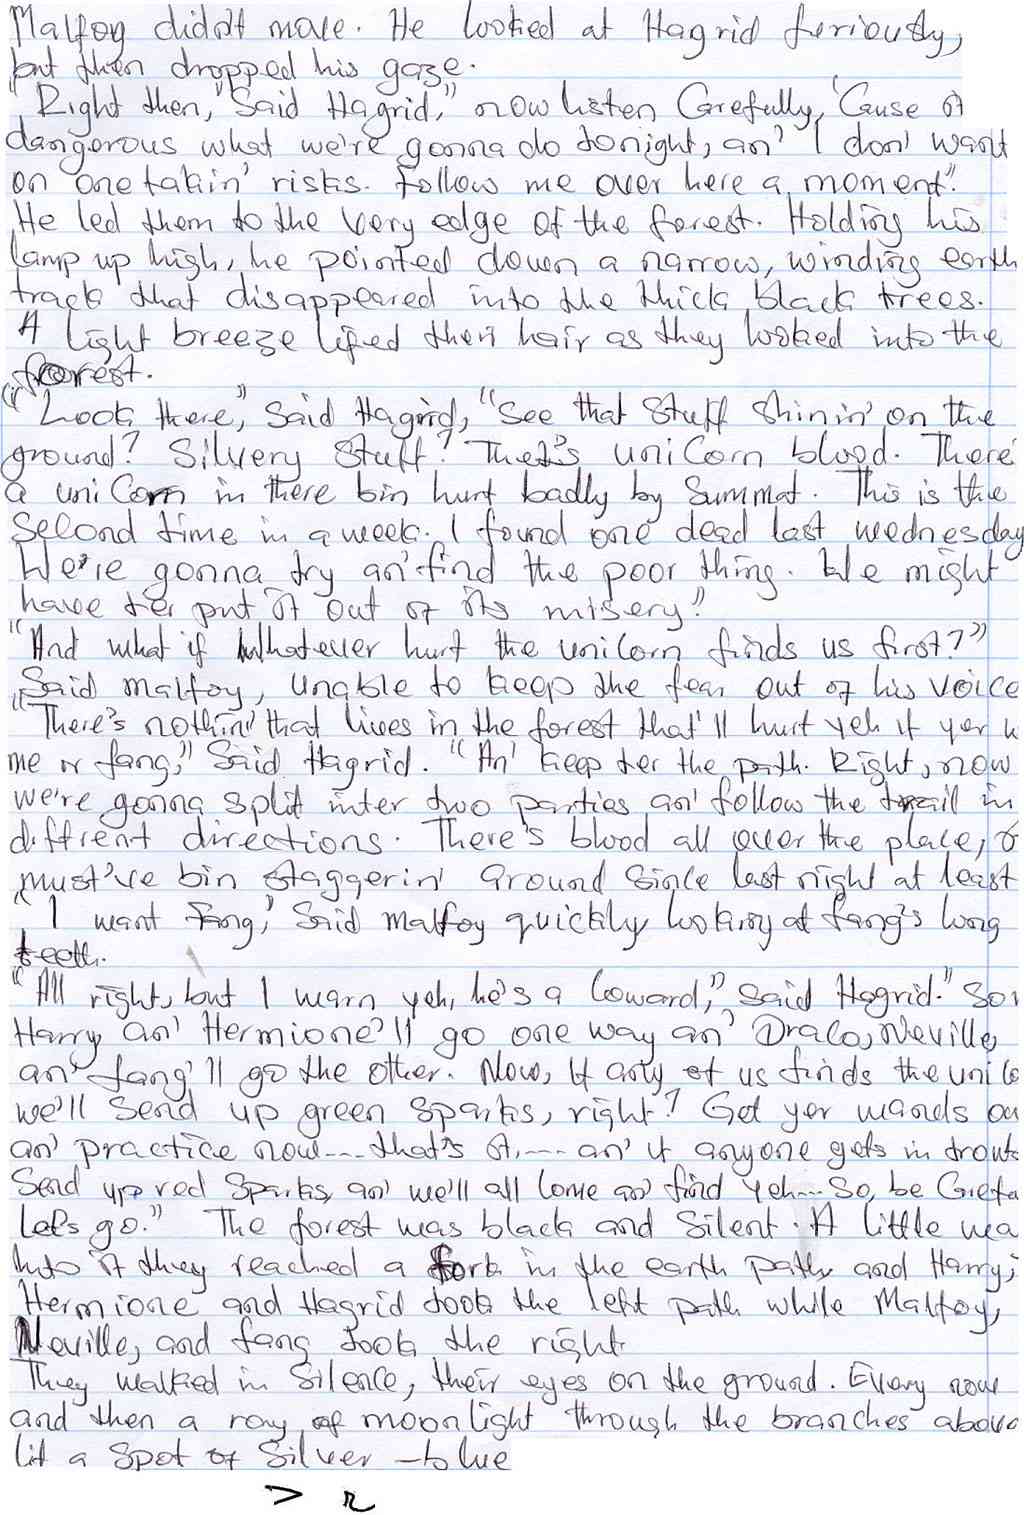 Malfoy didn't move. He looked at Hagrid furiously,
but then dropped his gaze.
"Right then," Said Hagrid," now listen Carefully, 'Cause it
dangerous what we're gonna do tonight, an' I don' want
on one takin' risks. follow me over here a moment".
He led them to the very edge of the forest. Holding his
lamp up high, he pointed down a narrow, winding earth
track that disappeared into the thick black trees.
A light breeze lifted their hair as they looked into the
forest.
"Look there", Said Hagrid, "See that Stuff Shinin' on the
ground? Silvery Stuff? That's uniCorn blood. There'
a uniCorn in there bin hurt badly by Summat. This is the
Second time in a week. I found one dead last wednesday
We're gonna try an' find the poor thing. We might
have ter put it out of its misery."
"And what if Whatever hurt the unicorn finds us first?"
Said malfoy, unable to keep the fear out of his voice
"There's nothin' that lives in the forest that'll hurt yeh if yer
me or fang," Said Hagrid. "An' keep ter the path. Right, now
we're gonna split inter two parties an' follow the trail in
diffrent directions. There's blood all over the place,
must've bin Staggerin' around Since last night at least
"I want Fang," Said malfoy quickly looking at fang's long
teeth.
"All right, but I warn yeh, he's a Coward," Said Hagrid." So
Harry an' Hermione'll go one way an' Draco, Neville,
an' fang'll go the other. Now, If any of us finds the unico
we'll Send up green Sparks, right? Get yer wands ou
an' practice now---that's it,--- an' if anyone gets in troub
Send up red Sparks, an' we'll all Come an' find yeh--- So, be Carefu
Let's go." The forest was black and Silent. A little wa
Into it they reached a fork in the earth path, and Harry,
Hermione and Hagrid took the left path while Malfoy,
Neville, and fang took the right.
They walked in Silence, their eyes on the ground. Every now
and then a ray of moonlight through the branches above
lit a Spot of Silver -blue